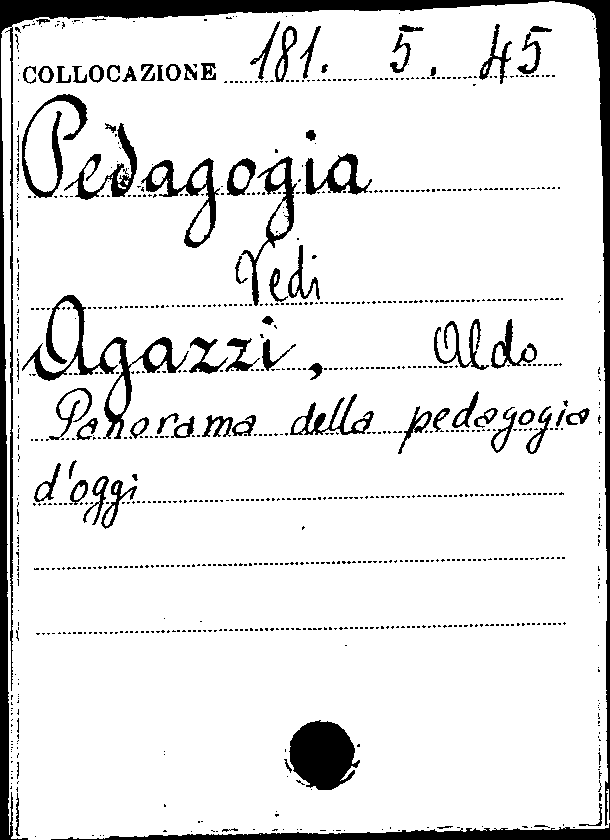 COLLOCAZIONE 181. 5. 45
Pedagogia
Vedi
Agazzi, Aldo
Panorama della pedagogia
d'oggi